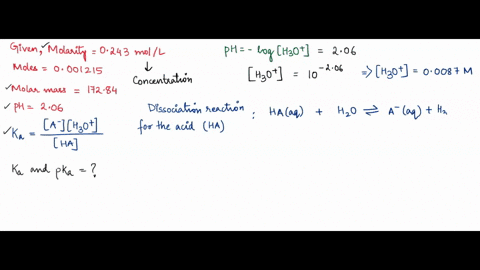 Given, Molarity = 0.243 mol/L
Moles = 0.001215
Concentration
✓ Molar mass = 172.84
✓ pH = 2.06
✓ Ka = [A⁻][H₃O⁺] / [HA]
Ka and pKa = ?
pH = - log [H₃O⁺] = 2.06
[H₃O⁺] = 10^-2.06 ⇒ [H₃O⁺] = 0.0087 M
Dissociation reaction for the acid (HA) : HA(aq) + H₂O ⇌ A⁻(aq) + H₃